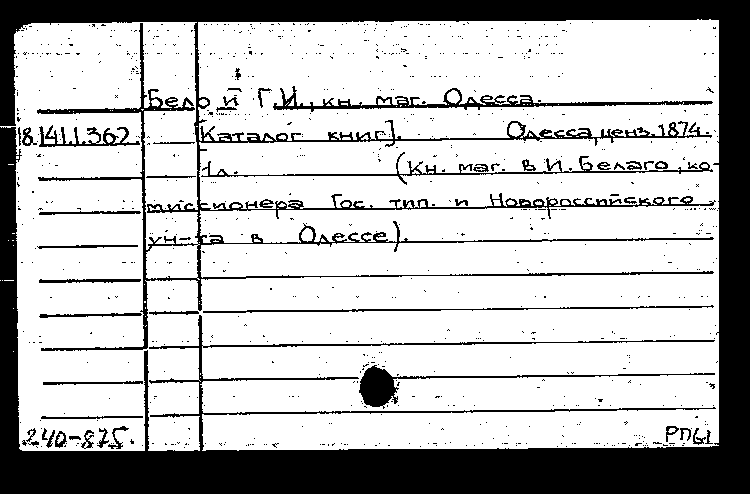 Белой Г.И., кн. маг. Одесса.
18.141.1.362. [Каталог книг]. Одесса, ценз. 1874.
1л. (Кн. маг. в И. Белаго, ко-
миссионера Гос. тип. и Новороссийского
ун-та в Одессе).
240-875.